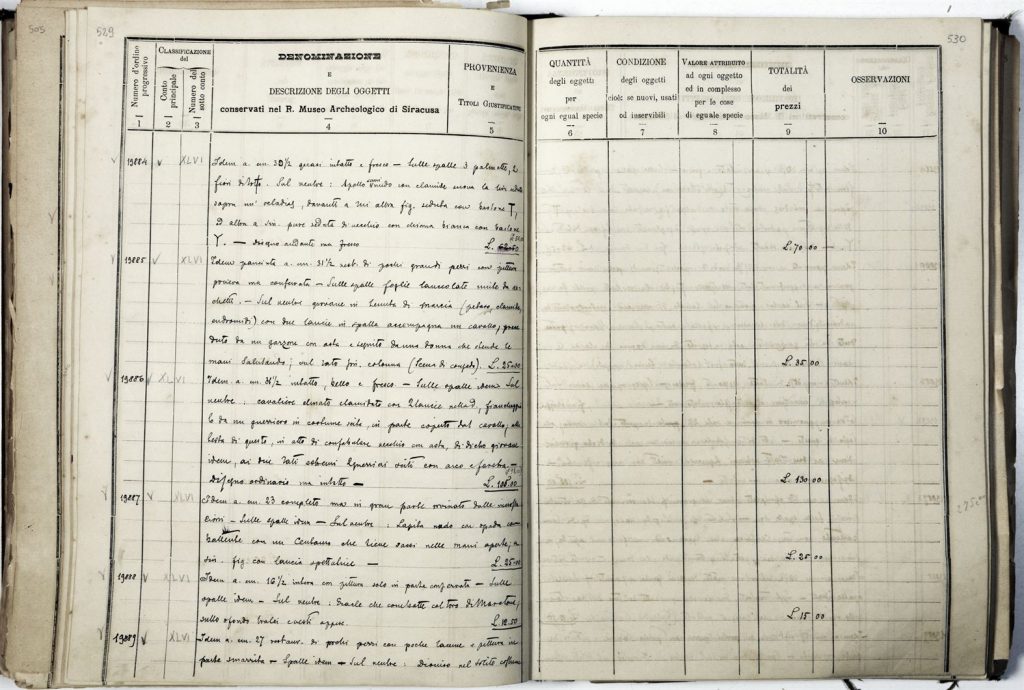 505
529
530
Numero d'ordine progressivo
CLASSIFICAZIONE
del
Conto principale
Numero del sotto conto
DENOMINAZIONE
E
DESCRIZIONE DEGLI OGGETTI
conservati nel R. Museo Archeologico di Siracusa
PROVENIENZA
E
TITOLI GIUSTIFICATIVI
QUANTITÀ
degli oggetti
per
ogni egual specie
CONDIZIONE
degli oggetti
cioè: se nuovi, usati
od inservibili
VALORE ATTRIBUITO
ad ogni oggetto
ed in complesso
per le cose
di eguale specie
TOTALITÀ
dei
prezzi
OSSERVAZIONI
1 2 3 4 5 6 7 8 9 10
19884 XLVI Idem a. cm. 30 1/2 quasi intatto e fresco — Sulle spalle 3 palmette, 2
fiori di loto. Sul ventre: Apollo nudo con clamide
davanti a lui altra fig. seduta con bastone T,
altra a sin. pure seduta di vecchio con chioma bianca con bastone
T. — disegno andante ma fresco L. 70 00
19885 XLVI Idem a. cm. 31 1/2 rest. di pochi grandi pezzi con pittura
povera ma conservata — Sulle spalle foglie lanceolate unite da ar-
chetti. — Sul ventre giovane in tenuta di marcia (petaso, clamide,
endromidi) con due lancie in spalla accompagna un cavallo, prece
duto da un garzone con asta e seguito da una donna che stende le
mani salutando; sul lato pri. colonna (Scena di congedo). L. 25.00 L. 35 00
19886 XLVI Idem a. cm. 31 1/2 intatto, bello e fresco. — Sulle spalle idem Sul
ventre: cavaliere elmato clamidato con 2 lancie nella D, fiancheggia
to da un guerriero in costume in parte coperto dal cavallo, alla
testa di questo, in atto di confabulare vecchio con asta, di dietro giovane
idem, ai due lati estremi 2 guerrieri sciti con arco e faretra —
Disegno ordinario ma intatto — L. 130 00
19887 XLVI Idem a. cm. 23 completo ma in gran parte rovinato dalle incrosta
zioni — Sulle spalle idem — Sul ventre: Lapita nudo con spada com
battente con un Centauro che tiene sassi nelle mani aperte, a
sin. fig. con lancia spettatrice — L. 25.00 L. 25 00
19888 XLVI Idem a. cm. 16 1/2 intera con pittura solo in parte conservata — Sulle
spalle idem — Sul ventre: Eracle che combatte col toro di Maratona;
sullo sfondo tralci e vesti appese. L. 12.50 L. 15 00
19889 XLVI Idem a. cm. 27 restaur. di pochi pezzi con poche lacune e pittura in
parte smarrita — Spalle idem — Sul ventre: Dioniso nel solito